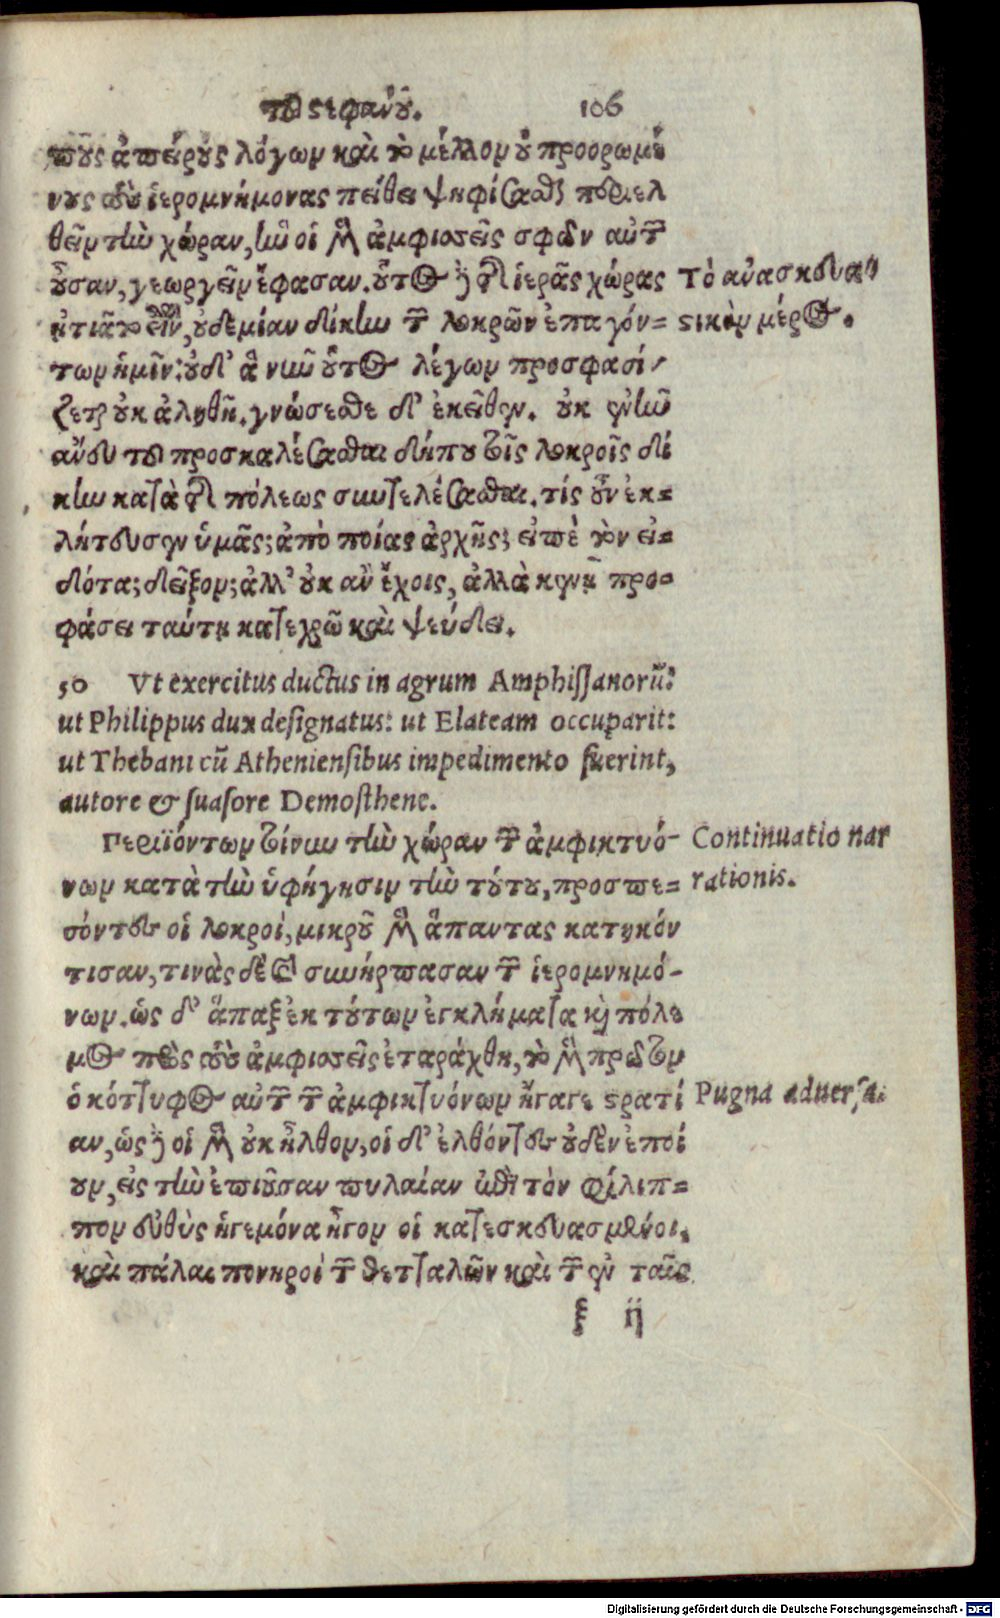 τοῦ στεφάνου. 106
πους ἀπείρους λόγων καὶ τὸ μέλλον οὐ προορωμέ
νους τοὺς ἱερομνήμονας πείθει ψηφίσασθαι περιελ
θεῖν τὴν χώραν, ἣν οἱ μὲν ἀμφισσεῖς σφῶν αὐτῶν
οὖσαν, γεωργεῖν ἔφασαν. οὗτος δὲ τῆς ἱερᾶς χώρας
Τὸ ἀνασκευα
ᾐτιᾶτο εἶναι, οὐδεμίαν δίκην τῶν λοκρῶν ἐπαγόν=
στικὸν μέρος.
των ἡμῖν: οὐδ' ἃ νῦν οὗτος λέγων προσφασί
ζεται οὐκ ἀληθῆ. γνώσεσθε δ' ἐκεῖθεν. οὐκ ἐνῆν
ἄνευ τοῦ προσκαλέσασθαι δήπου τοῖς λοκροῖς δί
κην κατὰ τῆς πόλεως συντελέσασθαι. τίς οὖν ἐκ=
λήτευσεν ὑμᾶς; ἀπὸ ποίας ἀρχῆς; εἰπὲ τὸν εἰ=
δότα; δεῖξον; ἀλλ' οὐκ ἂν ἔχοις, ἀλλὰ κενῇ προ=
φάσει ταύτῃ κατεχρῶ καὶ ψεύδει.
50 Vt exercitus ductus in agrum Amphissanorũ:
ut Philippus dux designatus: ut Elateam occuparit:
ut Thebani cũ Atheniensibus impedimento fuerint,
autore & suasore Demosthene.
Περιϊόντων τοίνυν τὴν χώραν τῶν ἀμφικτυό-
Continuatio nar
νων κατὰ τὴν ὑφήγησιν τὴν τούτου, προσπε=
rationis.
σόντες οἱ λοκροί, μικροῦ μὲν ἅπαντας κατηκόν
τισαν, τινὰς δὲ καὶ συνήρπασαν τῶν ἱερομνημό-
νων. ὡς δ' ἅπαξ ἐκ τούτων ἐγκλήματα καὶ πόλε
μος πρὸς τοὺς ἀμφισσεῖς ἐταράχθη, τὸ μὲν πρῶτον
ὁ κόττυφος αὐτῶν τῶν ἀμφικτυόνων ἤγαγε στρατί
Pugna aduersa.
αν, ὡς δὲ οἱ μὲν οὐκ ἦλθον, οἱ δ' ἐλθόντες οὐδὲν ἐποί
ουν, εἰς τὴν ἐπιοῦσαν πυλαίαν ἐπὶ τὸν φίλιπ=
πον εὐθὺς ἡγεμόνα ἦγον οἱ κατεσκευασμένοι,
καὶ πάλαι πονηροὶ τῶν θετταλῶν καὶ τῶν ἐν ταῖς
ξ ij
Digitalisierung gefördert durch die Deutsche Forschungsgemeinschaft - DFG